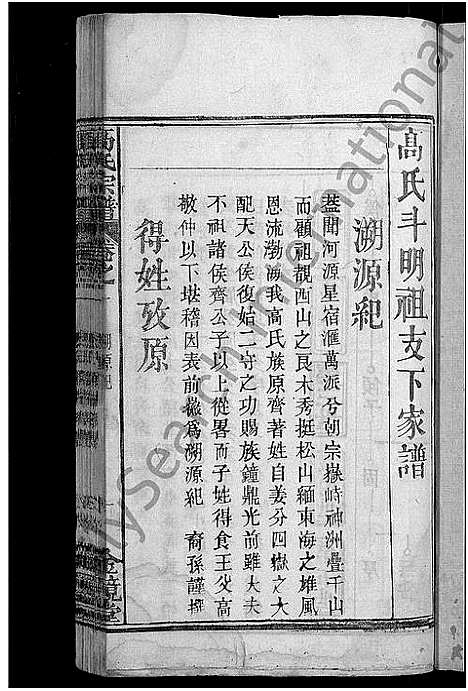 高氏斗明祖支下家譜
溯源紀
蓋聞河源星宿滙萬派兮朝宗嶽峙神洲疊千山
而顧祖觀西山之良木秀挺松山緬東海之雄風
恩流渤海我高氏族原齊著姓自姜分四嶽之大
配天公侯復始二守之功賜族鐘鼎光前雖大夫
不祖諸侯齊公子以上從畧而子姓得食王父高
敬仲以下堪稽因表前徽爲溯源紀 裔孫謹撰
得姓攷原
高氏宗譜 卷之一 溯源紀 一 金鏡堂
MySearch International